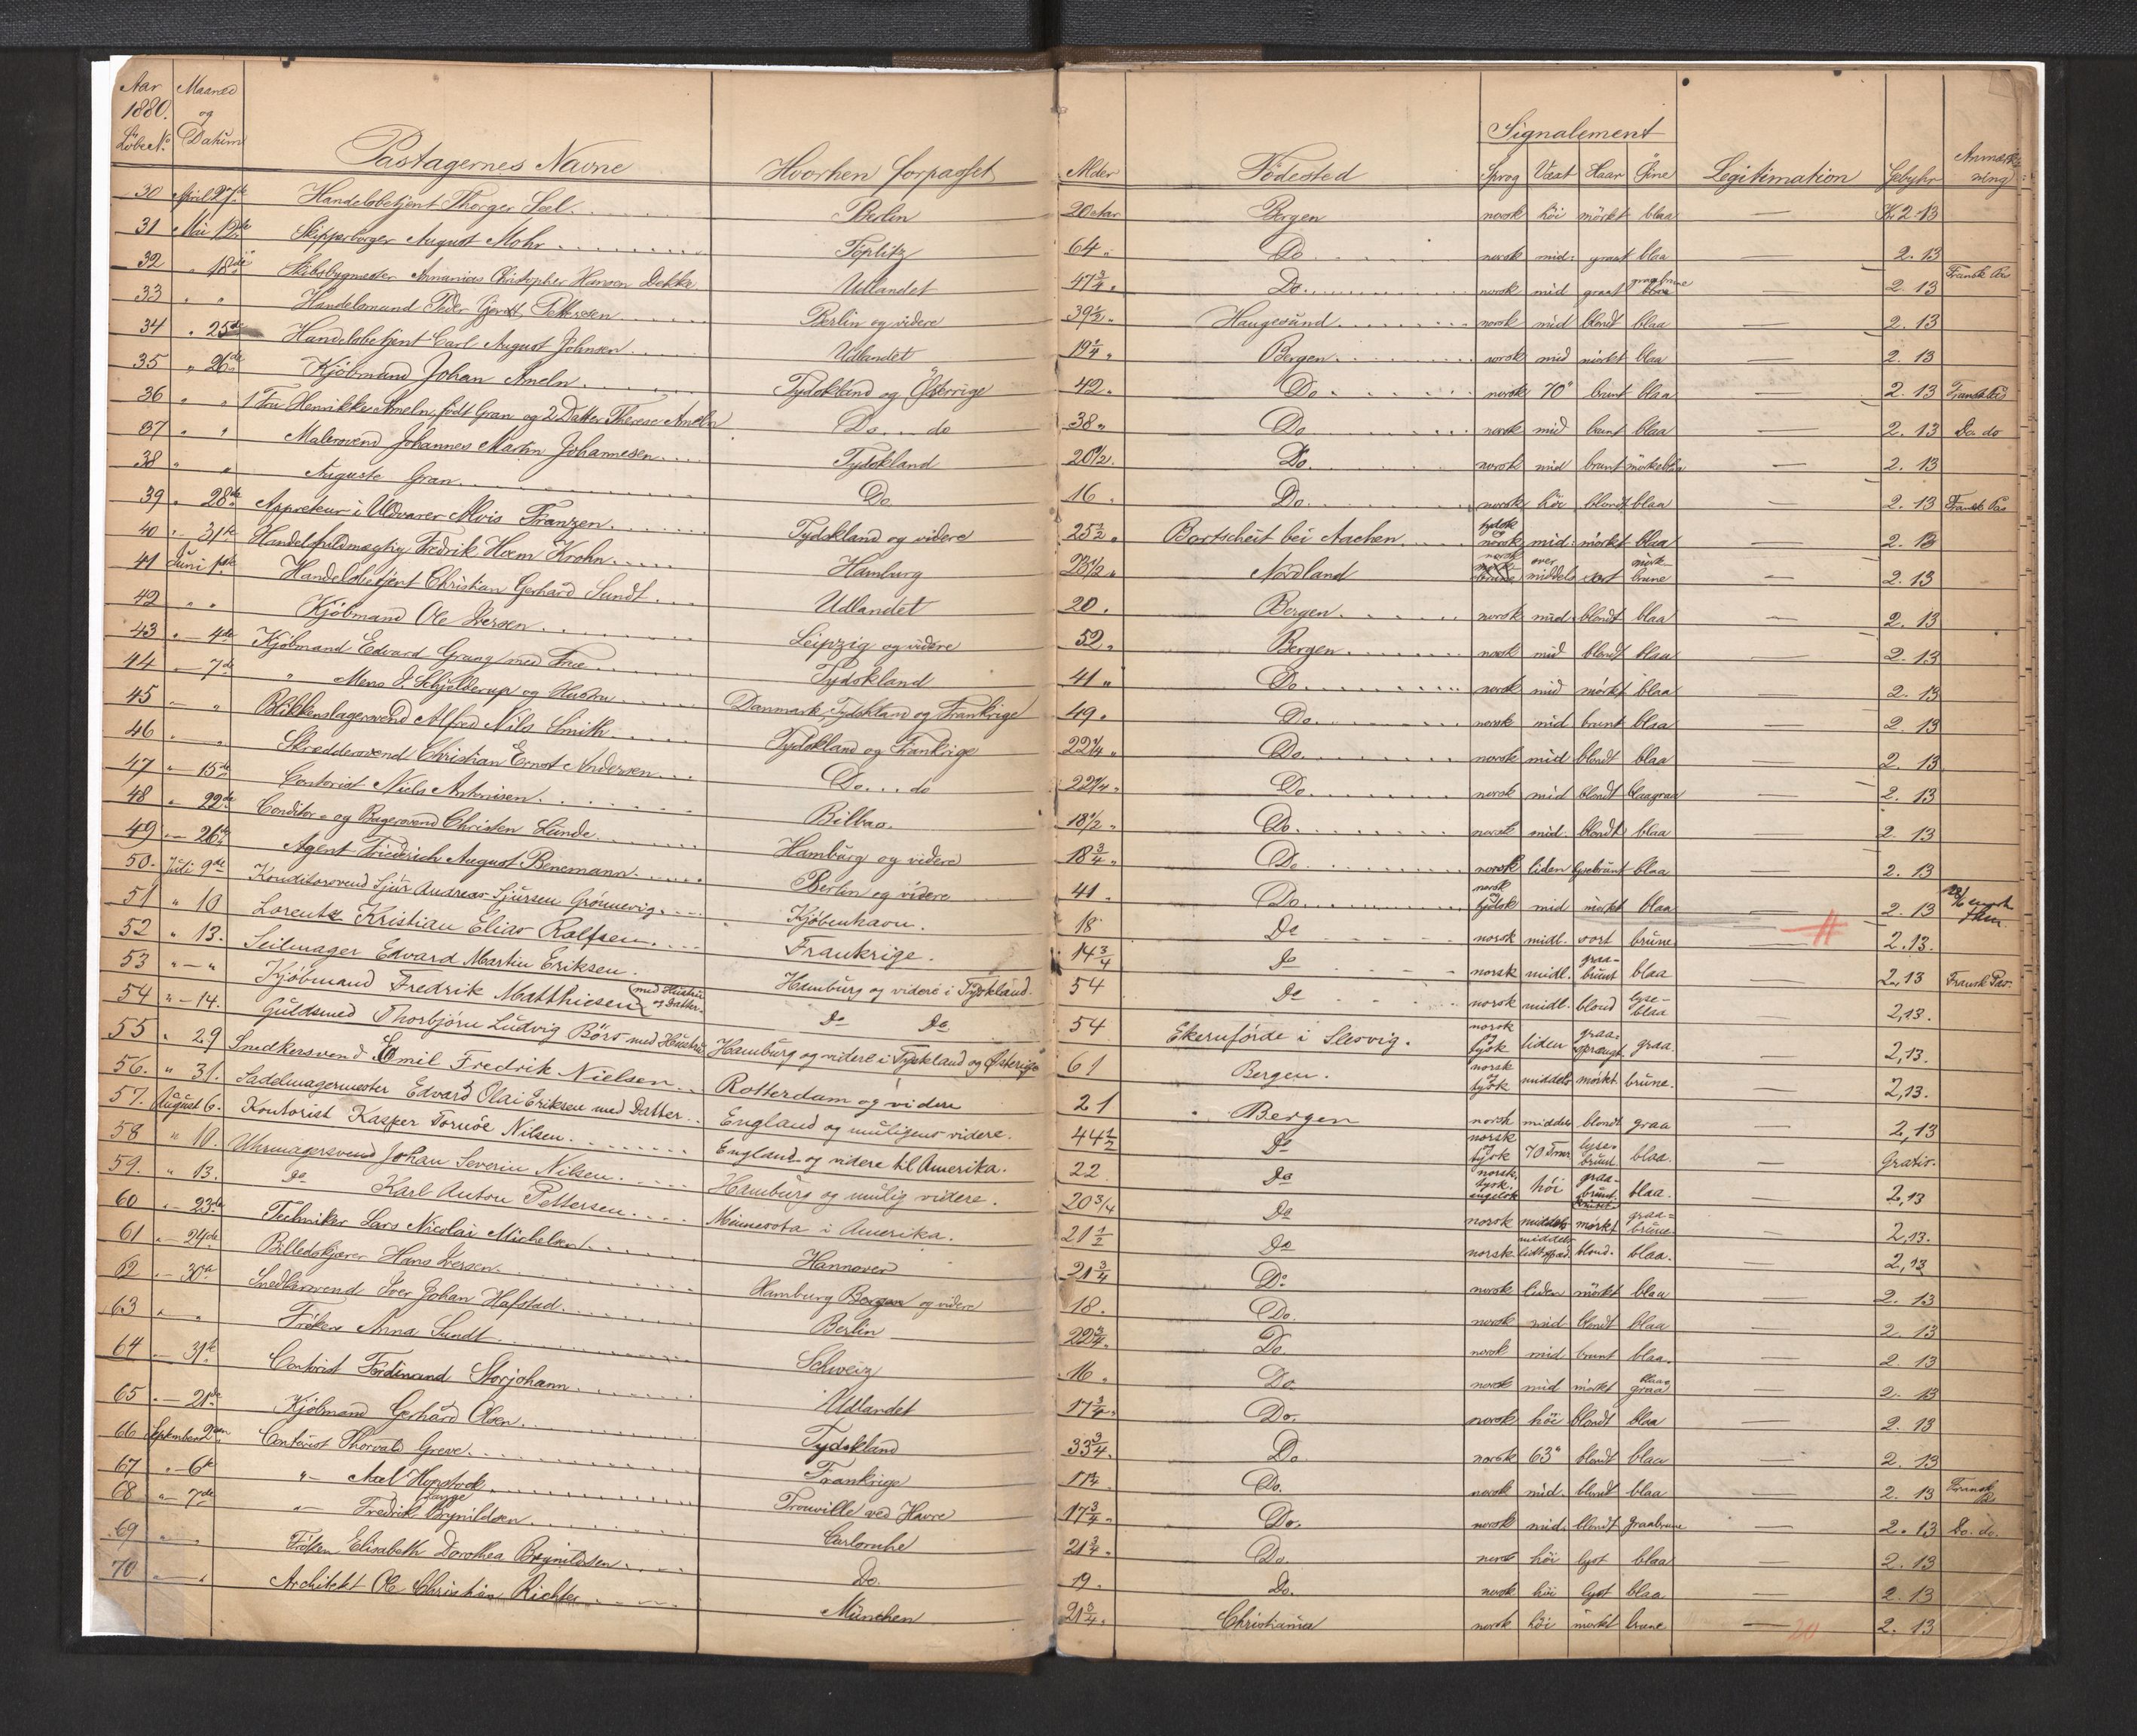 Aar 1880. Löbe No. | Maaned og Datum | Pastagernes Navne | Hvorhen forpasset | Alder | Födested | Signalement: Sprog | Væxt | Haar | Öine | Legitimation | Gebyhr | Anmærkning
30 | April 27de | Handelsbetjent Thorger Seel | Berlin | 20 Aar | Bergen | norsk | höi | mörkt | blaa | — | Kr 2.13
31 | Mai 12te | Skipperborger August Mohr | Töplitz | 64 " | Do | norsk | mid: | graat | blaa | — | 2.13
32 | " 18de | Skibsbygmester Annanias Christopher Hansen Dekke | Udlandet | 47 3/4 " | Do. | norsk | mid | graat | graabrune | — | 2.13 | Fransk Pas
33 | " " | Handelsmand Peder Gjerdt Pettersen | Berlin og videre | 39 1/2 " | Haugesund | norsk | mid | blondt | blaa | — | 2.13
34 | " 25de | Handelsbetjent Carl August Johnsen | Udlandet | 19 1/4 " | Bergen | norsk | mid | mörkt | blaa | — | 2.13
35 | " 26de | Kjöbmand Johan Ameln | Tydskland og Österrige | 42 " | Do | norsk | 70" | brunt | blaa | — | 2.13 | Fransk Pas
36 | " " | 1 Fru Henrikke Ameln, födt Gran og 2 Datter Therese Ameln | Do . . . do | 38 " | Do | norsk | mid | brunt | blaa | — | 2.13 | Do do
37 | " " | Malersvend Johannes Martin Johannesen | Tydskland | 20 1/2 | Do. | norsk | mid | brunt | mörkeblaa | — | 2.13
38 | " " | Auguste Gran | Do. | 16 " | Do. | norsk | höi | blondt | blaa | — | 2.13 | Fransk Pas
39 | " 28de | Appreteur i Uldvarer Alvis Franzen | Tydskland og videre | 25 1/2 " | Bortscheit bei Aachen | tydsk og norsk | mid: | mörkt | blaa | — | 2.13
40 | " 31te | Handelsfuldmægtig Fredrik Herm Krohn | Hamburg | 23 1/2 " | Nordland | norsk | over middels | sort | mörkbrune | — | 2.13
41 | Juni 1ste | Handelsbetjent Christian Gerhard Sundt | Udlandet | 20 " | Bergen | norsk | mid: | blondt | blaa | — | 2.13
42 | " " | Kjöbmand Ole Iversen | Leipzig og videre | 52 " | Bergen | norsk | mid | blondt | blaa | — | 2.13
43 | " 4de | Kjöbmand Edvard Grung med Frue | Tydskland | 41 " | Do. | norsk | mid | mörkt | blaa | — | 2.13
44 | — 7de | " Mens J. Schjelderup og Hustru | Danmark, Tydskland og Frankrige | 49 " | Do. | norsk | mid | brunt | blaa | — | 2.13
45 | — " | Blikkenslagersvend Alfred Nils Smith | Tydskland og Frankrige | 22 1/4 " | Do. | norsk | mid | blondt | blaa | — | 2.13
46 | " " | Skreddersvend Christian Ernst Andersen | Do. . . do | 22 1/4 " | Do. | norsk | mid | blondt | blaagraa | — | 2.13
47 | " 15de | Contorist Niels Antonisen | Bilbao. | 18 1/2 " | Do. | norsk | mid. | blondt | blaa | — | 2.13
48 | " 22de | Conditor- og Bagersvend Christen Lunde | Hamburg og videre | 18 3/4 " | Do. | norsk | liden | lysebrunt | blaa | — | 2.13
49 | " 26de | Agent Friederich August Benemann | Berlin og videre | 41 " | Do. | norsk og tydsk | mid | mörkt | blaa | — | 2.13
50. | Juli 9de | Konditorsvend Sjur Andreas Sjursen Grönnevig | Kjöbenhavn. | 18 | Do | norsk | midl. | sort | brune | — | 2.13.
51 | " 10 | Lorentz Kristian Elias Rolfsen | Frankrige. | 14 3/4 | Do | norsk | midl. | graabrunt | blaa | — | 2,13 | Fransk Pas.
52 | " 13. | Seilmager Edvard Martin Eriksen | Hamburg og videre i Tyskland. | 54 | Do | norsk | midl. | blond | lyseblaa | — | 2,13.
53 | " — " | Kjöbmand Fredrik Matthiesen (med Hustru og Datter. | Do Do | 54 | Ekernförde i Slesvig. | norsk og tysk | liden | graasprængt | graa. | — | 2,13.
54 | " — 14. | Guldsmed Thorbjörn Ludvig Börs med Hustru | Hamburg og videre i Tyskland og Østerige | 61 | Bergen. | norsk og tysk | middels | mørkt | brune. | — | 2,13.
55 | " 29 | Snedkersvend Emil Fredrik Nielsen | Rotterdam og videre | 21 | Bergen | norsk | middels | blondt | graa | — | 2,13
56. | " 31. | Sadelmagermester Edvard Olai Eriksen med Datter | England og muligens videre. | 44 1/2 | Do | norsk og tysk | 70 Tom. | lysebrunt | blaa. | — | Gratis.
57. | August 6. | Kontorist Kasper Tornöe Nilsen | England og videre til Amerika. | 22 | Do | norsk, tysk, engelsk | höi | graabrunt | blaa. | — | 2,13
58 | " 10. | Uhrmagersvend Johan Severin Nilsen | Hamburg og mulig videre. | 20 3/4 | Do | norsk | middels | mörkt | graabrune | — | 2,13.
59. | " 13. | Do Karl Anton Pettersen | Minnesota i Amerika. | 21 1/2 | Do | norsk | middels | blond. | blaa. | — | 2,13
60 | " 23de | Techniker Lars Nicolai Michelsen | Hannover | 21 3/4 | Do | norsk | liden | mörkt | blaa | — | 2.13
61 | " 24de | Billedskjærer Hans Iversen | Hamburg og videre | 18. | Do. | norsk | mid | blondt | blaa | — | 2.13
62 | — 30te | Snedkersvend Iver Johan Hafstad | Berlin | 22 3/4 " | Do | norsk | mid | brunt | blaa. | — | 2.13
63 | " " | Fröken Anna Sundt | Schweiz | 16 " | Do | norsk | mid | mörkt | blaagraa | — | 2.13
64 | — 31te | Contorist Ferdinand Storjohann | Udlandet | 17 3/4 " | Do. | norsk | höi | blondt | blaa | — | 2.13
65 | " — 21de | Kjöbmand Gerhard Olsen | Tydskland | 33 3/4 | Do. | norsk | 63" | blondt | blaa | — | 2.13
66 | September 2den | Contorist Thorvald Greve | Frankrige | | Do. | norsk | mid. | blondt | blaa | — | 2.13 | Fransk Pas
67 | " 6te | " Axel | Trouville ved Havre | 17 3/4 " | Do. | norsk | mid. | blondt | graabrune | — | 2.13 | Do. do.
68 | " 7de | " Fredrik Lange Brynildsen | Carlsruhe | 21 3/4 " | Do | norsk | höi | lyst | blaa | — | 2.13
69 | " " | Fröken Elisabeth Dorothea Brynildsen | Do. | 19. | Do. | norsk | höi | lyst | blaa | — | 2.13
70 | — " | Architekt Ole Christian Richter | München | 21 3/4 " | Christiania | norsk | höi | mörkt | brune | — | 2.13
20